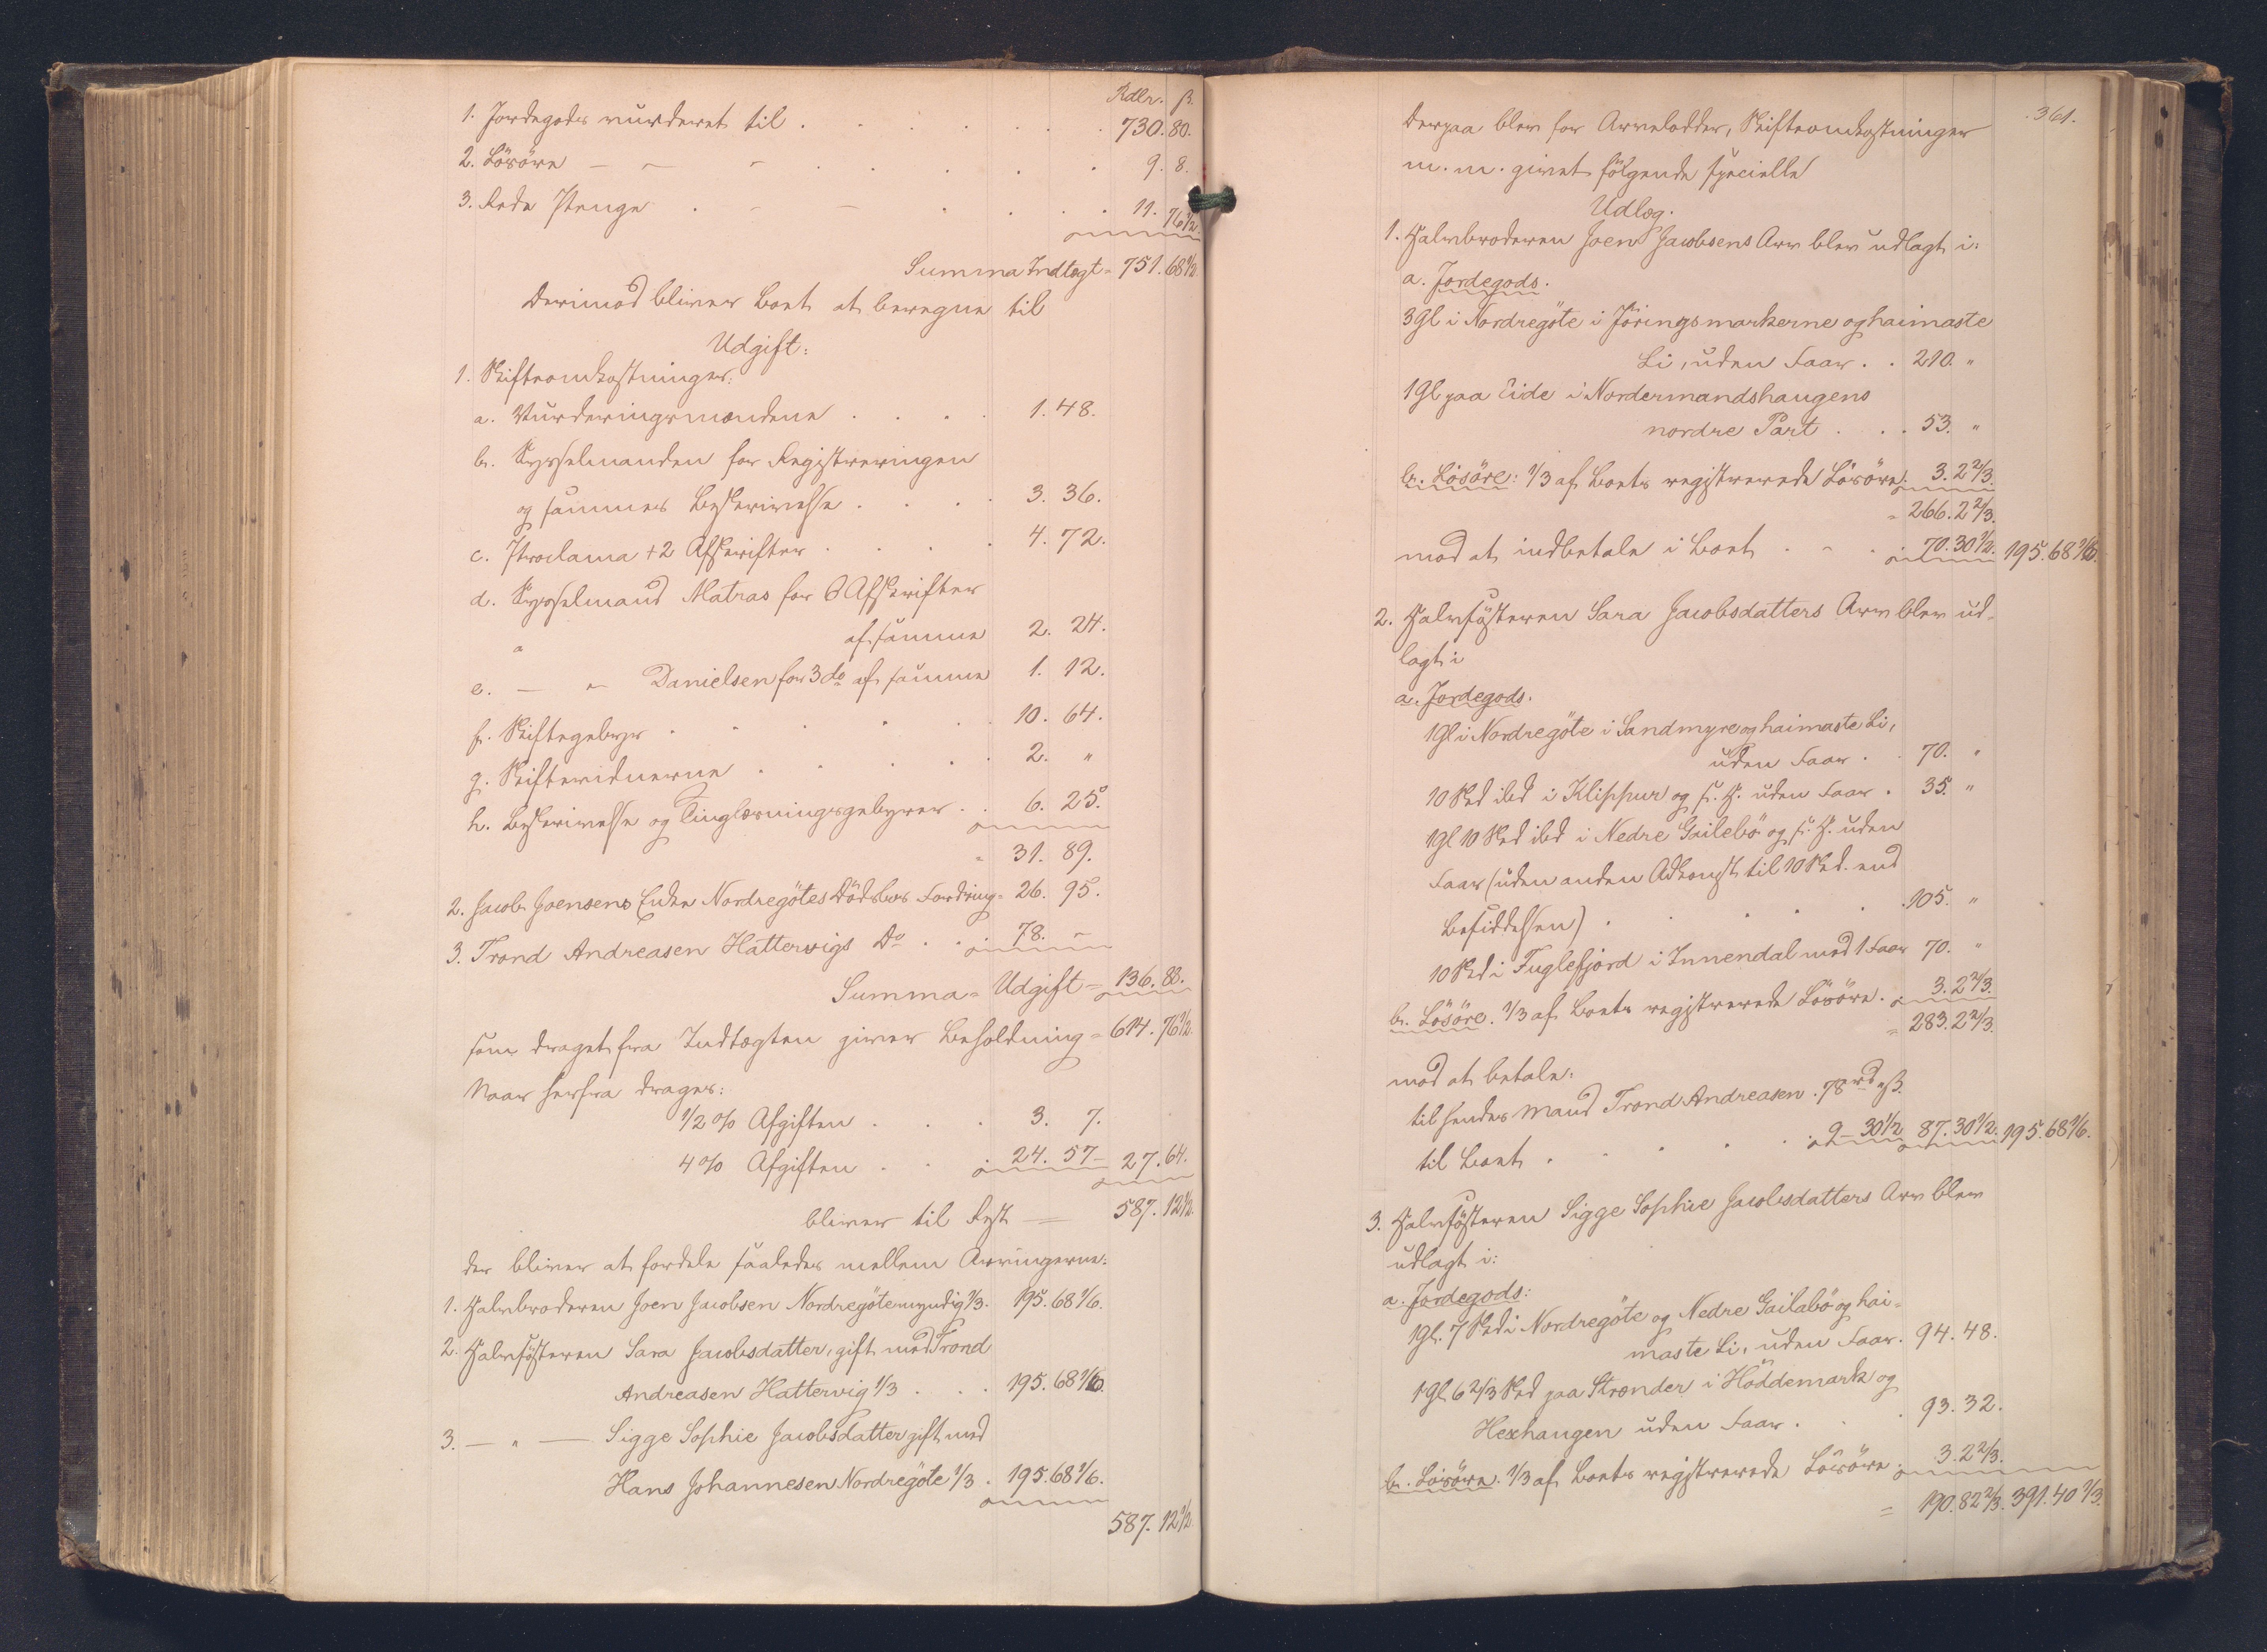 Rdlr. ß.
1. Jordegods vurderet til . . . . . . 730. 80.
2. Lösöre — — — . . . . . 9. 8.
3. Rede Penge . — — . . . . 11. 76 1/2.
Summa Indtægt = 751. 68 1/2.
Derimod bliver Boet at beregne til
Udgift:
1. Skifteomkostninger:
a. Vurderingsmændene . . . . 1. 48.
b. Sysselmanden for Registreringen
og sammes Beskrivelse . . . . 3. 36.
c. Proclama + 2 Afskrifter . . . . 4. 72.
d. Sysselmand Matras for 6 Afskrifter
af samme 2. 24.
e. — " — Danielsen for 3 do af samme 1. 12.
f. Skiftegebyr . . . . . 10. 64.
g. Skiftevidnerne . . . . . 2. "
h. Beskrivelse og Tinglæsningsgebyrer . . 6. 25.
= 31. 89.
2. Jacob Joensens Enke Nordregötes Dödsbos Fordring = 26. 95.
3. Trond Andreasen Hattervigs Do . . . 78. —
Summa = Udgift = 136. 88.
som draget fra Indtægten giver Beholdning = 614. 76 1/2.
Naar herfra drages:
1/2 % Afgiften . . . 3. 7.
4 % Afgiften . . . 24. 57 — 27. 64.
bliver til Rest — 587. 12 1/2.
der bliver at fordele saaledes mellem Arvingerne:
1. Halvbroderen Joen Jacobsen Nordregöte myndig 1/3. 195. 68 1/6.
2. Halvsösteren Sara Jacobsdatter, gift med Trond
Andreasen Hattervig 1/3 . . . 195. 68 1/6.
3. — " — Sigge Sophie Jacobsdatter gift med
Hans Johannesen Nordregöte 1/3 . 195. 68 1/6.
587. 12 1/2.
361.
Derpaa blev for Arvelodder, Skifteomkostninger
m. m. givet fölgende specielle
Udlæg.
1. Halvbroderen Joen Jacobsens Arv blev udlagt i:
a. Jordegods.
3 Gl i Nordregöte i Jöringsmarkerne og haimaste
Li, uden Faar . . 210. "
1 Gl paa Eide i Nordermandshaugens
nordre Part . . . 53. "
b. Lösöre: 1/3 af Boets registrerede Lösöre. 3. 2 2/3.
= 266. 2 2/3.
mod at indbetale i Boet . . . 70. 30 1/2. 195. 68 1/6.
2. Halvsösteren Sara Jacobsdatters Arv blev ud-
lagt i
a. Jordegods.
1 Gl i Nordregöte i Sandmyre og haimaste Li,
uden Faar . . 70. "
10 Skd ibd i Klippur og s. H. uden Faar . 35. "
1 Gl 10 Skd ibd i Nedre Gailebö og s. H. uden
Faar (uden anden Adkomst til 10 Skd. end
Besiddelsen) . . . . . 105. "
10 Skd i Fuglefjord i Innendal med 1 Faar 70. "
b. Lösöre. 1/3 af Boets registrerede Lösöre . 3. 2 2/3.
= 283. 2 2/3.
mod at betale:
til hendes Mand Trond Andreasen . 78 rd " ß.
til Boet . . . . . 9 — 30 1/2 87. 30 1/2. 195. 68 1/6.
3. Halvsösteren Sigge Sophie Jacobsdatters Arv blev
udlagt i:
a. Jordegods:
1 Gl. 7 Skd i Nordregöte og Nedre Gailabö og hai-
maste Li, uden Faar. 94. 48.
1 Gl 6 2/3 Skd paa Strænder i Höddemark og
Hexhaugen uden Faar . . . 93. 32.
b. Lösöre. 1/3 af Boets registrerede Lösöre . 3. 2 2/3.
= 190. 82 2/3. 391. 40 1/3.